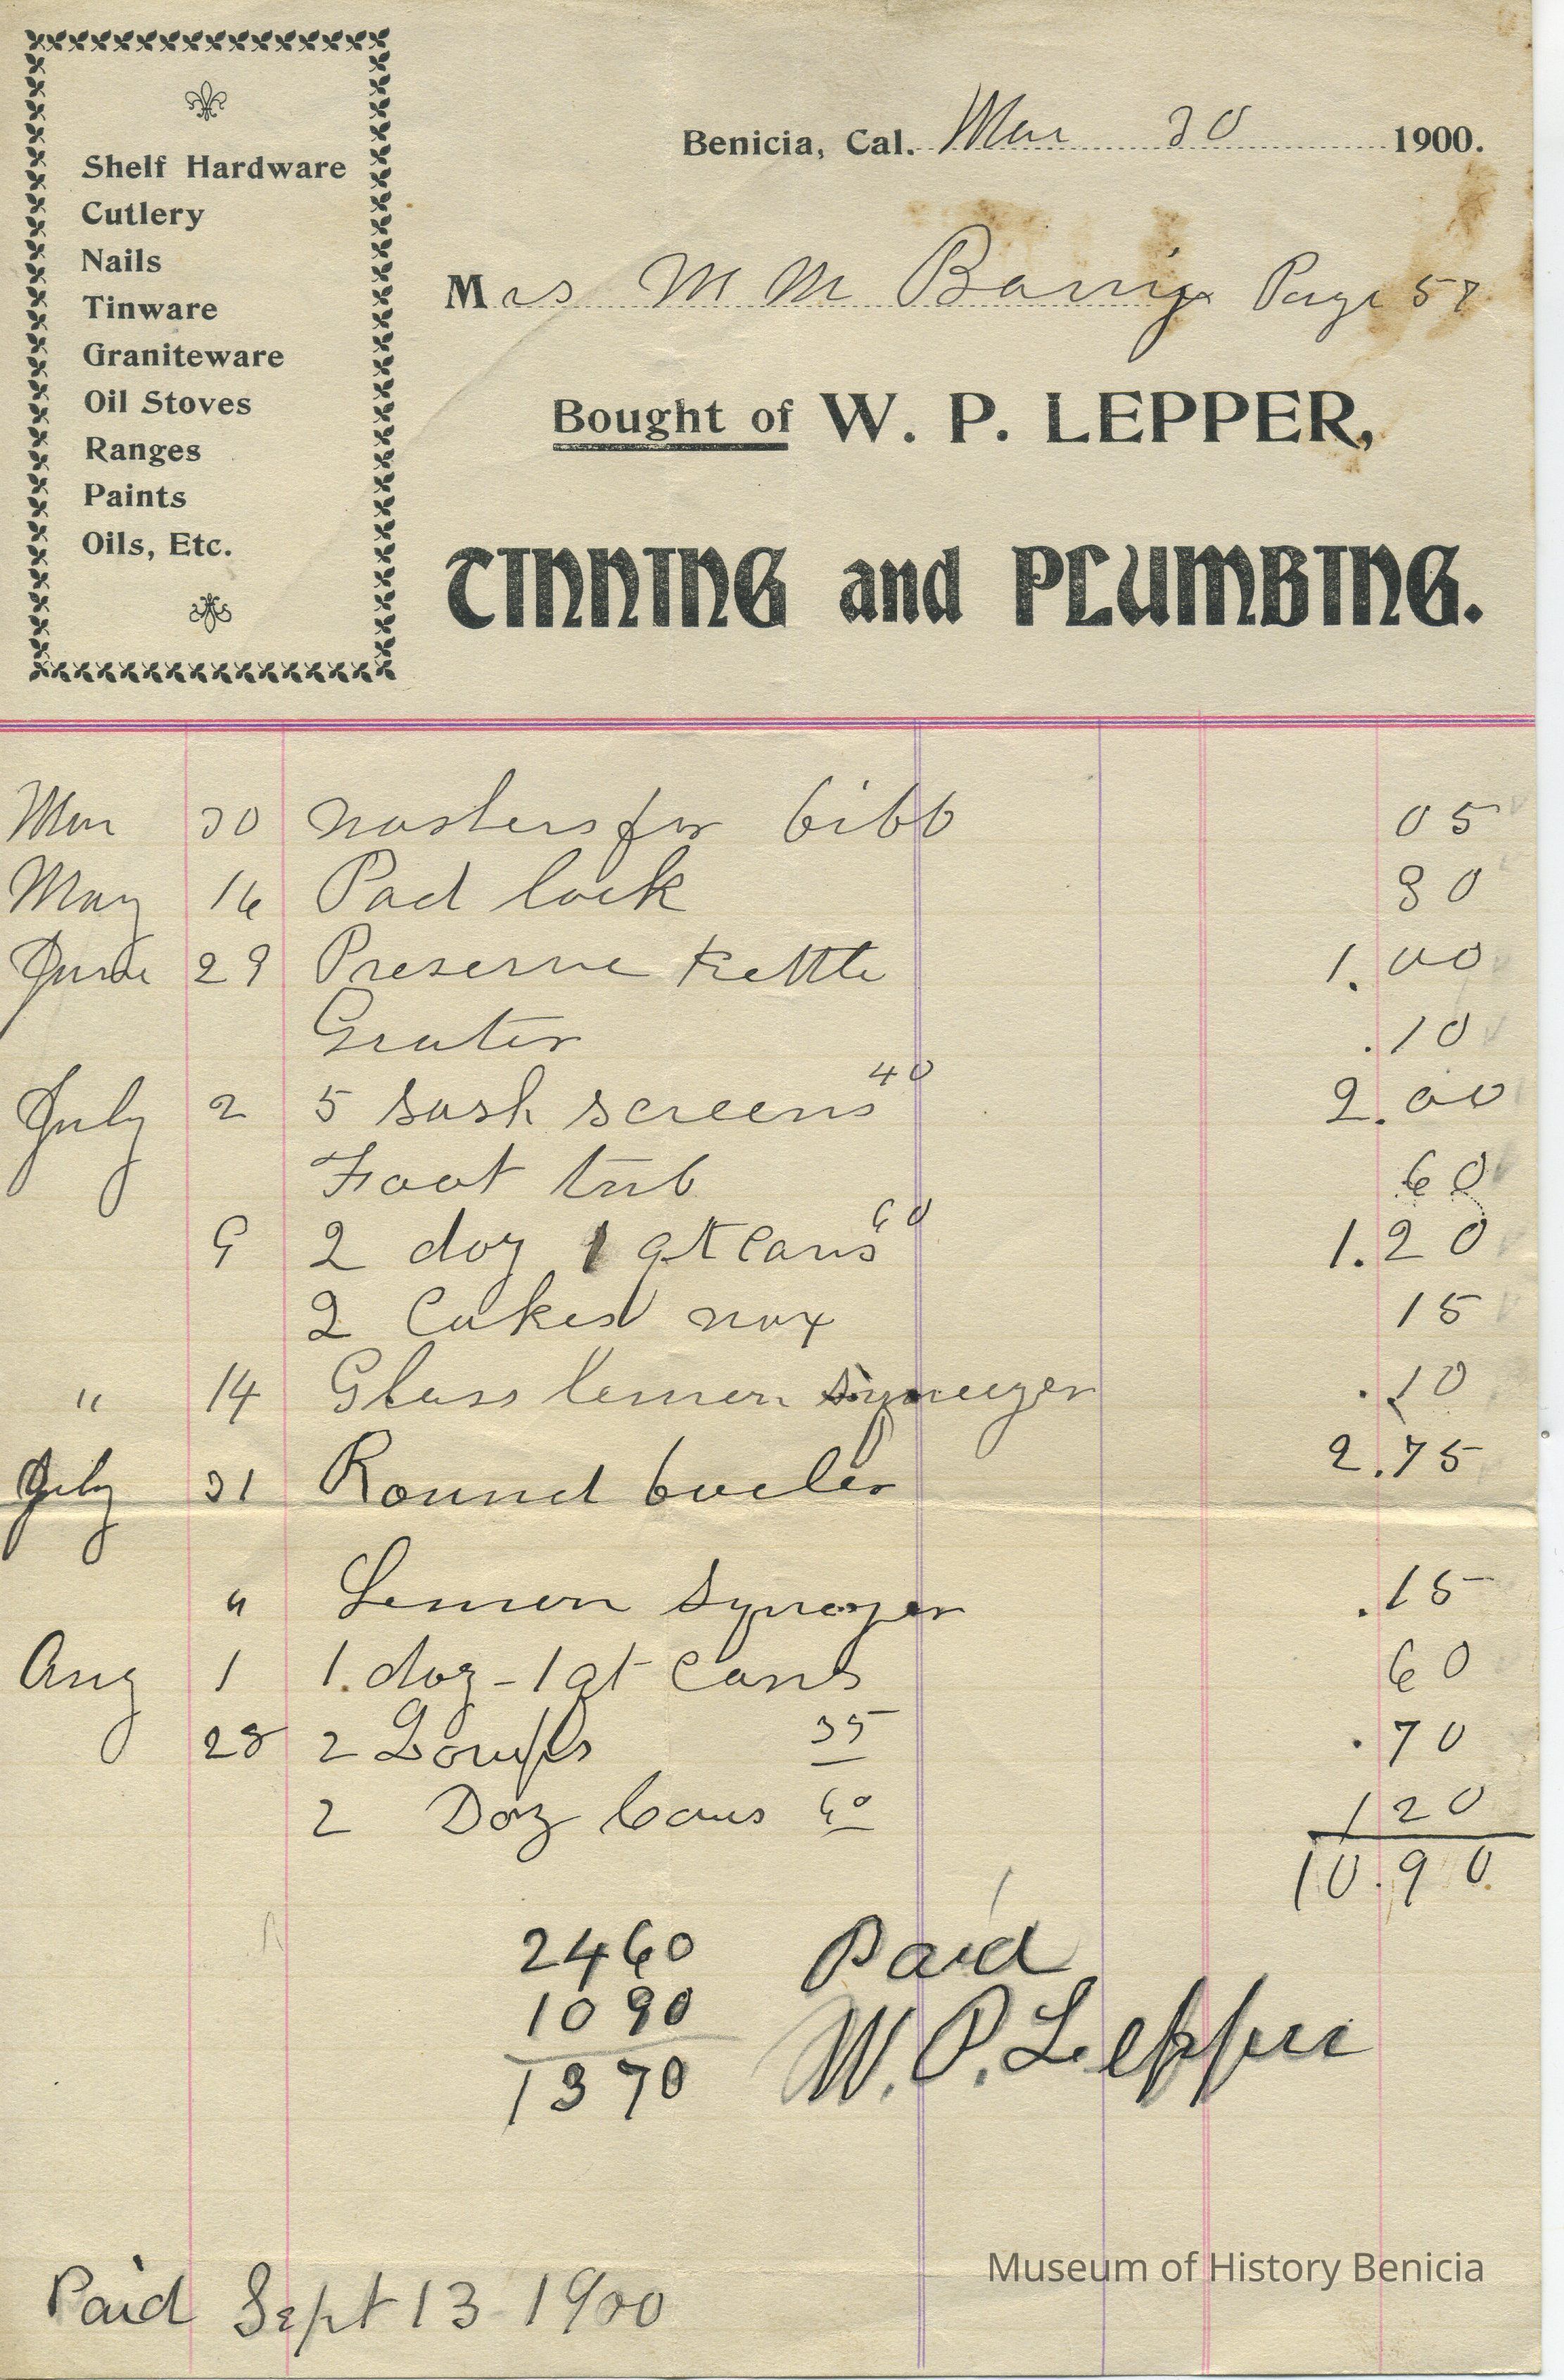 Shelf Hardware
Cutlery
Nails
Tinware
Graniteware
Oil Stoves
Ranges
Paints
Oils, Etc.
Benicia, Cal. Mar 30 1900.
Mrs M M Page
Bought of W. P. LEPPER,
TINNING and PLUMBING.
Mar 30 washers for bibb 05
May 16 Pad lock 30
June 29 Preserve kettle 1.00
Grater .10
July 2 5 sash screens 40 2.00
Foot tub 60
9 2 doz 1 qt cans 60 1.20
2 Cakes wax 15
" 14 Glass lemon squeezer .10
July 31 Round boiler 2.75
" Lemon squeezer .15
Aug 1 1. doz - 1 qt cans 60
28 2 Lamps 35 .70
2 Doz Cans 60 1 20
10.90
2460
1090
1370
Paid
W. P. Lepper
Paid Sept 13 1900
Museum of History Benicia